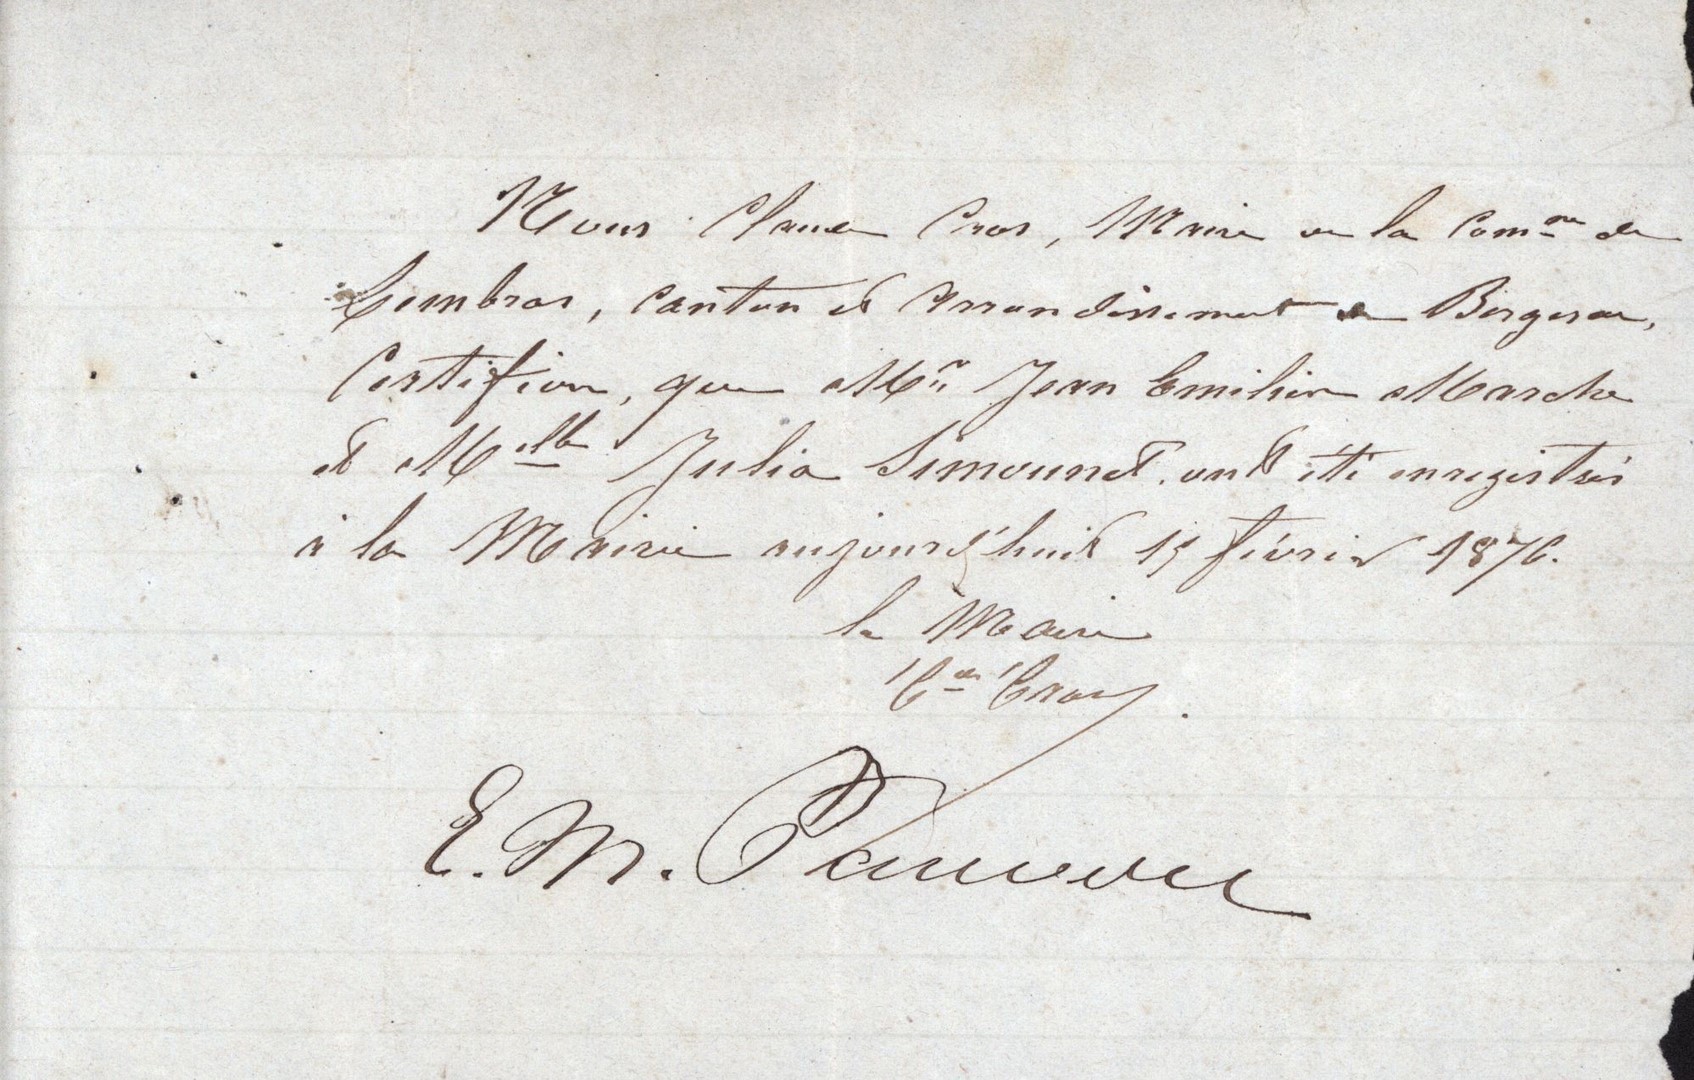 Nous Claude Cros, Maire de la Com^ne de
Lembras, canton et Arrondissement de Bergerac,
Certifions, que M^r Jean Emilien Marche
et M^elle Julia Simounet. ont été enregistrés
à la Mairie aujourd'huit 15 février 1876.
le Maire
C^de Cros
E. M.